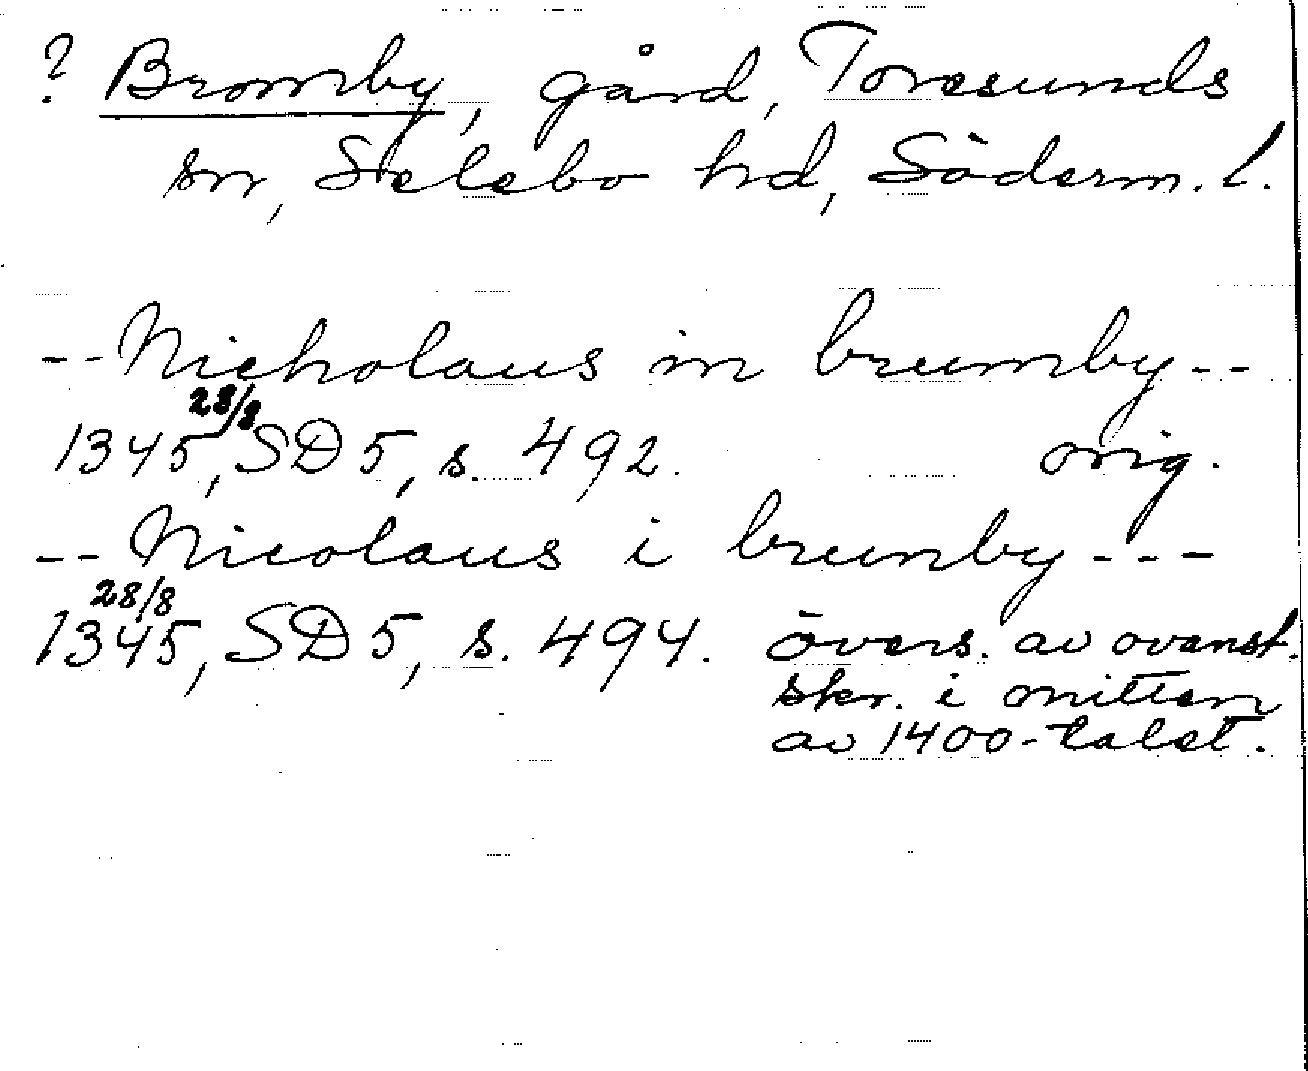 ? Bromby, gård, Toresunds
sn, Selebo hd, Söderm. l.
-- Nicholaus in brumby --
1345 28/8, SD 5, s. 492. orig.
-- Nicolaus i brunby ---
1345 28/8, SD 5, s. 494. övers. av ovanst.
skr. i mitten
av 1400-talet.